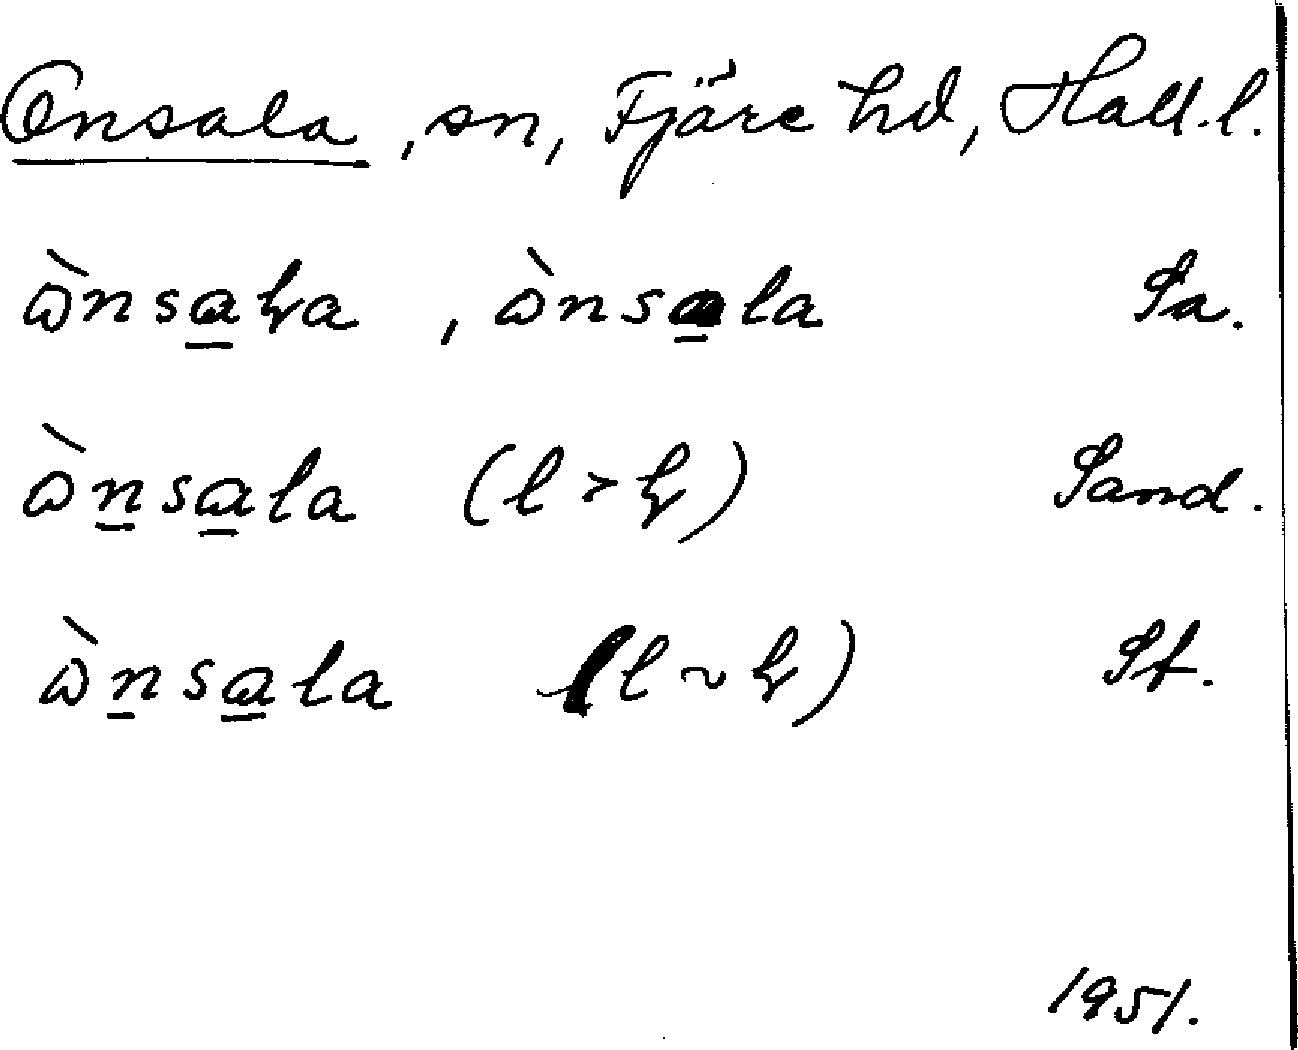 Onsala, sn, Fjäre hd, Hall.l.
ὼnsa̲ɫa, ὼnsa̲la Sa.
ὼn̲sa̲la (l > ɫ) Sand.
ὼn̲sa̲la (l ~ ɫ) St.
1951.